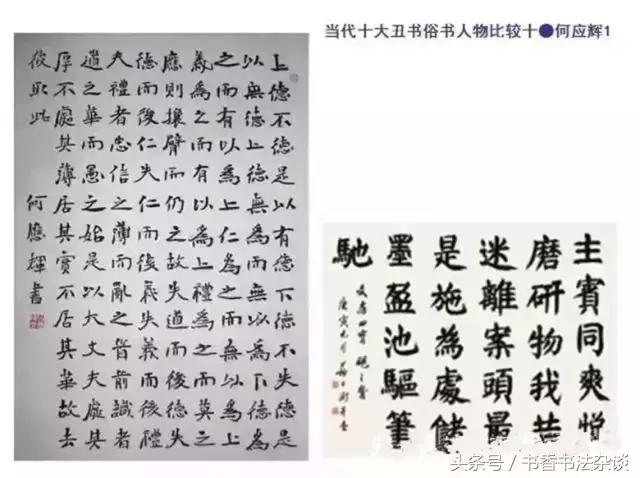 当代十大丑书俗书人物比较十●何应辉1
上德不德是以有德下德不失德是
以無德上德無為而無以為下德為
之而有以為上仁為之而無以為上
義為之而有以為上禮為之而莫之
應則攘臂而仍之故失道而後德失
德而後仁失仁而後義失義而後禮
夫禮者忠信之薄而亂之首前識者
道之華而愚之始是以大丈夫處其
厚不處其薄居其實不居其華故去
彼取此
何應輝書
主賓同爽悅
磨研物我
迷離案頭最
是施為處儲
墨盈池驅筆
馳
头条号 / 书香书法杂谈